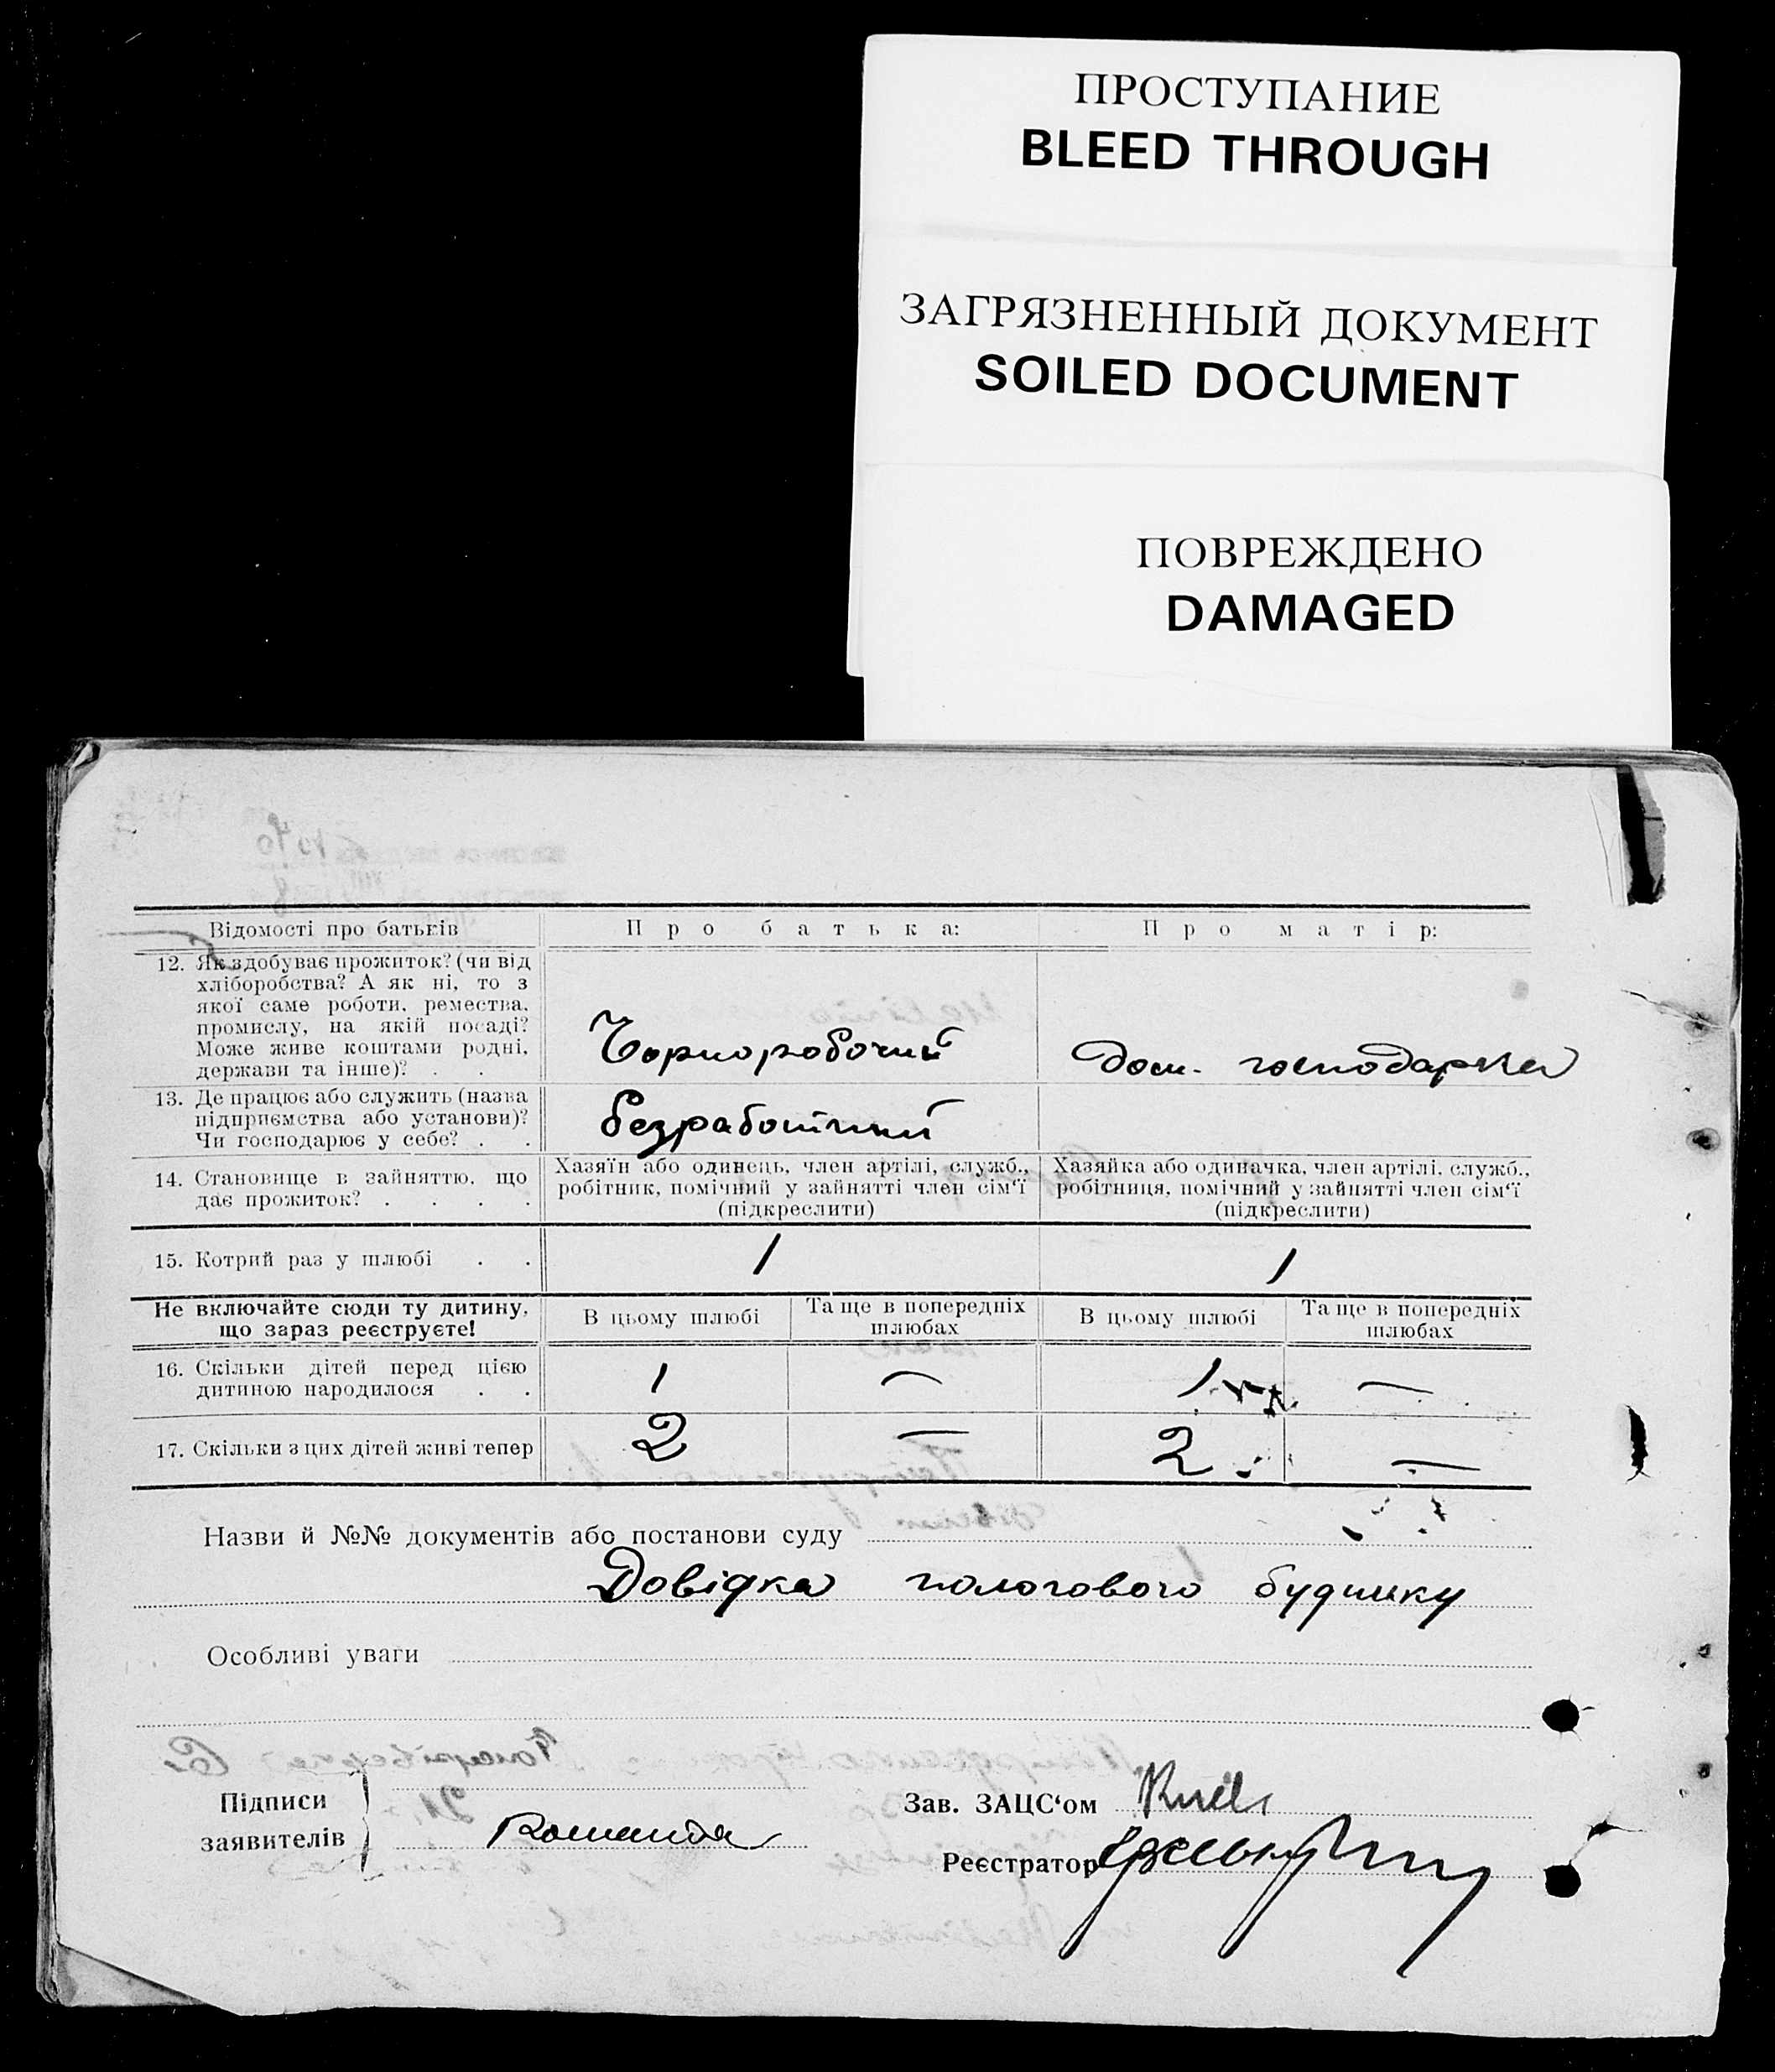 ПРОСТУПАНИЕ
BLEED THROUGH
ЗАГРЯЗНЕННЫЙ ДОКУМЕНТ
SOILED DOCUMENT
ПОВРЕЖДЕНО
DAMAGED
Відомості про батьків
Про батька:
Про матір:
12. Як здобуває прожиток? (чи від
хліборобства? А як ні, то з
якої саме роботи, ремества,
промислу, на якій посаді?
Може живе коштами родні,
держави та інше)? . .
Чорноробочий
Дом. господарка
13. Де працює або служить (назва
підприємства або установи)?
Чи господарює у себе? . .
безработний
14. Становище в зайняттю, що
дає прожиток? . . . .
Хазяїн або одинець, член артілі, служб.,
робітник, помічний у зайнятті член сім‘ї
(підкреслити)
Хазяйка або одиначка, член артілі, служб.,
робітниця, помічний у зайнятті член сім‘ї
(підкреслити)
15. Котрий раз у шлюбі . .
1
1
Не включайте сюди ту дитину,
що зараз реєструєте!
В цьому шлюбі
Та ще в попередніх
шлюбах
В цьому шлюбі
Та ще в попередніх
шлюбах
16. Скільки дітей перед цією
дитиною народилося . .
1
—
1
—
17. Скільки з цих дітей живі тепер
2
—
2
—
Назви й №№ документів або постанови суду
Довідка пологового будинку
Особливі уваги
Підписи
заявителів
Зав. ЗАЦС‘ом
Реєстратор